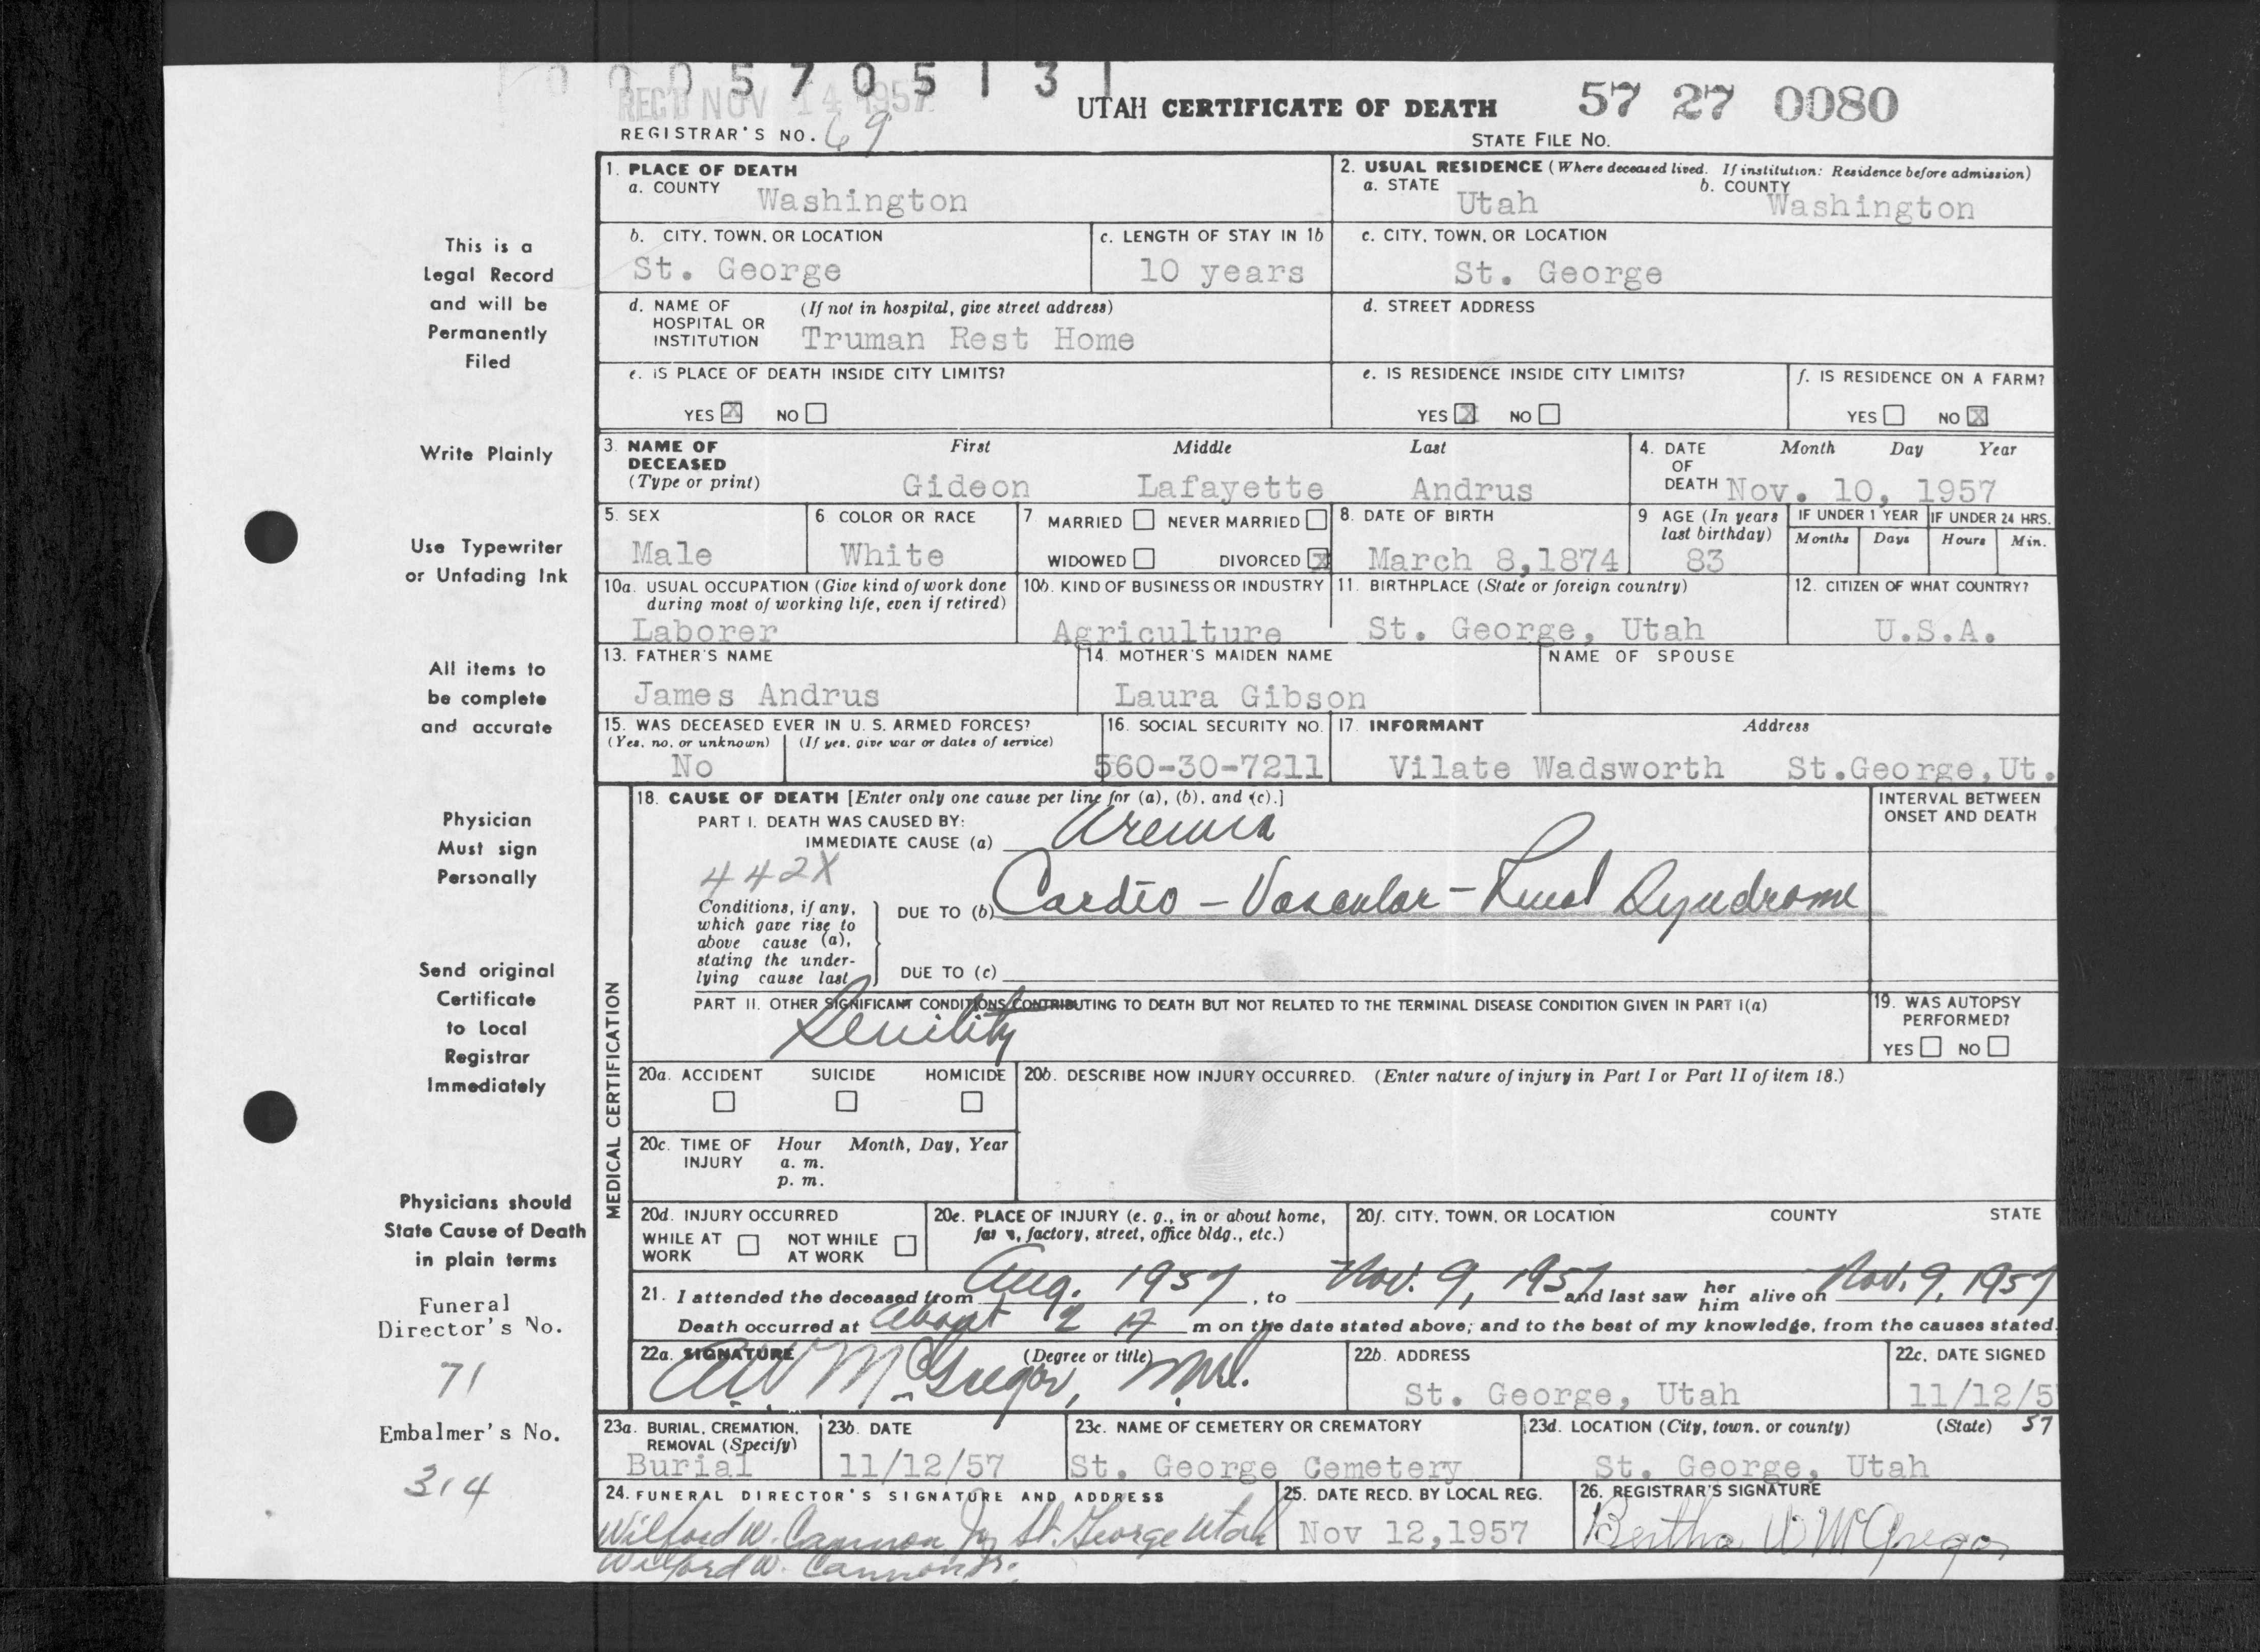 0005705131
REC'D NOV 14 1957
UTAH CERTIFICATE OF DEATH 57 27 0080
REGISTRAR'S NO. 69
STATE FILE NO.
This is a
Legal Record
and will be
Permanently
Filed
Write Plainly
Use Typewriter
or Unfading Ink
All items to
be complete
and accurate
Physician
Must sign
Personally
Send original
Certificate
to Local
Registrar
Immediately
Physicians should
State Cause of Death
in plain terms
Funeral
Director's No.
71
Embalmer's No.
314
1. PLACE OF DEATH
a. COUNTY Washington
2. USUAL RESIDENCE (Where deceased lived. If institution: Residence before admission)
a. STATE Utah b. COUNTY Washington
b. CITY, TOWN, OR LOCATION St. George
c. LENGTH OF STAY IN 1b 10 years
c. CITY, TOWN, OR LOCATION St. George
d. NAME OF HOSPITAL OR INSTITUTION (If not in hospital, give street address) Truman Rest Home
d. STREET ADDRESS
e. IS PLACE OF DEATH INSIDE CITY LIMITS?
YES X NO
e. IS RESIDENCE INSIDE CITY LIMITS?
YES X NO
f. IS RESIDENCE ON A FARM?
YES NO X
3. NAME OF DECEASED (Type or print) First Middle Last
Gideon Lafayette Andrus
4. DATE OF DEATH Month Day Year
Nov. 10, 1957
5. SEX Male
6 COLOR OR RACE White
7 MARRIED NEVER MARRIED
WIDOWED DIVORCED X
8. DATE OF BIRTH March 8,1874
9 AGE (In years last birthday) 83
IF UNDER 1 YEAR IF UNDER 24 HRS.
Months Days Hours Min.
10a. USUAL OCCUPATION (Give kind of work done during most of working life, even if retired)
Laborer
10b. KIND OF BUSINESS OR INDUSTRY
Agriculture
11. BIRTHPLACE (State or foreign country)
St. George, Utah
12. CITIZEN OF WHAT COUNTRY?
U.S.A.
13. FATHER'S NAME
James Andrus
14. MOTHER'S MAIDEN NAME
Laura Gibson
NAME OF SPOUSE
15. WAS DECEASED EVER IN U. S. ARMED FORCES?
(Yes, no, or unknown) (If yes, give war or dates of service)
No
16. SOCIAL SECURITY NO.
560-30-7211
17. INFORMANT Address
Vilate Wadsworth St.George,Ut.
MEDICAL CERTIFICATION
18. CAUSE OF DEATH [Enter only one cause per line for (a), (b), and (c).]
INTERVAL BETWEEN
ONSET AND DEATH
PART I. DEATH WAS CAUSED BY:
IMMEDIATE CAUSE (a) Uremia
442X
Conditions, if any,
which gave rise to
above cause (a),
stating the under-
lying cause last
DUE TO (b) Cardio - Vascular - Renal Syndrome
DUE TO (c)
PART II. OTHER SIGNIFICANT CONDITIONS CONTRIBUTING TO DEATH BUT NOT RELATED TO THE TERMINAL DISEASE CONDITION GIVEN IN PART I(a)
Senility
19. WAS AUTOPSY
PERFORMED?
YES NO
20a. ACCIDENT SUICIDE HOMICIDE
20b. DESCRIBE HOW INJURY OCCURRED. (Enter nature of injury in Part I or Part II of item 18.)
20c. TIME OF INJURY Hour Month, Day, Year
a. m.
p. m.
20d. INJURY OCCURRED
WHILE AT WORK NOT WHILE AT WORK
20e. PLACE OF INJURY (e. g., in or about home,
farm, factory, street, office bldg., etc.)
20f. CITY, TOWN, OR LOCATION COUNTY STATE
21. I attended the deceased from Aug. 1957, to Nov. 9, 1957 and last saw her him alive on Nov. 9, 1957
Death occurred at about 2 A m on the date stated above; and to the best of my knowledge, from the causes stated.
22a. SIGNATURE (Degree or title)
AW McGregor, M.D.
22b. ADDRESS
St. George, Utah
22c. DATE SIGNED
11/12/5
57
23a. BURIAL, CREMATION, REMOVAL (Specify)
Burial
23b. DATE
11/12/57
23c. NAME OF CEMETERY OR CREMATORY
St. George Cemetery
23d. LOCATION (City, town, or county) (State)
St. George, Utah
24. FUNERAL DIRECTOR'S SIGNATURE AND ADDRESS
Wilford W. Cannon Jr St. George Utah
Wilford W. Cannon Jr.
25. DATE RECD. BY LOCAL REG.
Nov 12,1957
26. REGISTRAR'S SIGNATURE
Bertha W McGregor